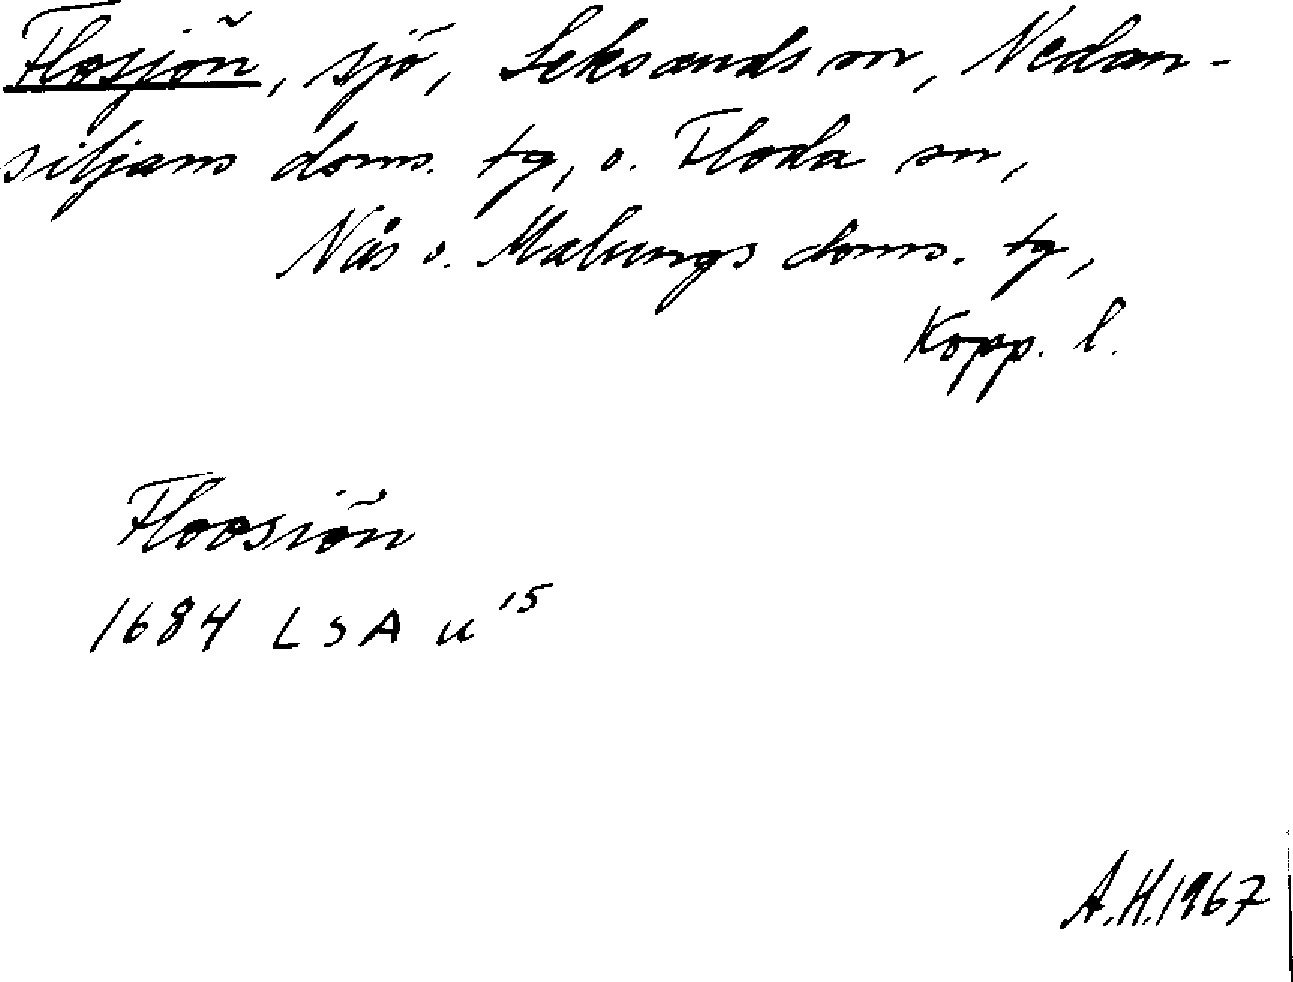 Flosjön, sjö, Leksands sn, Nedan-
siljans doms. tg, o. Floda sn,
Nås o. Malungs doms. tg,
Kopp. l.
Floosiön
1684 LSA u 15
A.H. 1967